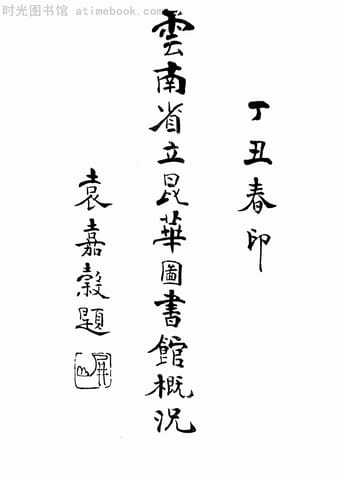 时光图书馆 atimebook.com
丁丑春印
雲南省立昆華圖書館概況
袁嘉穀題